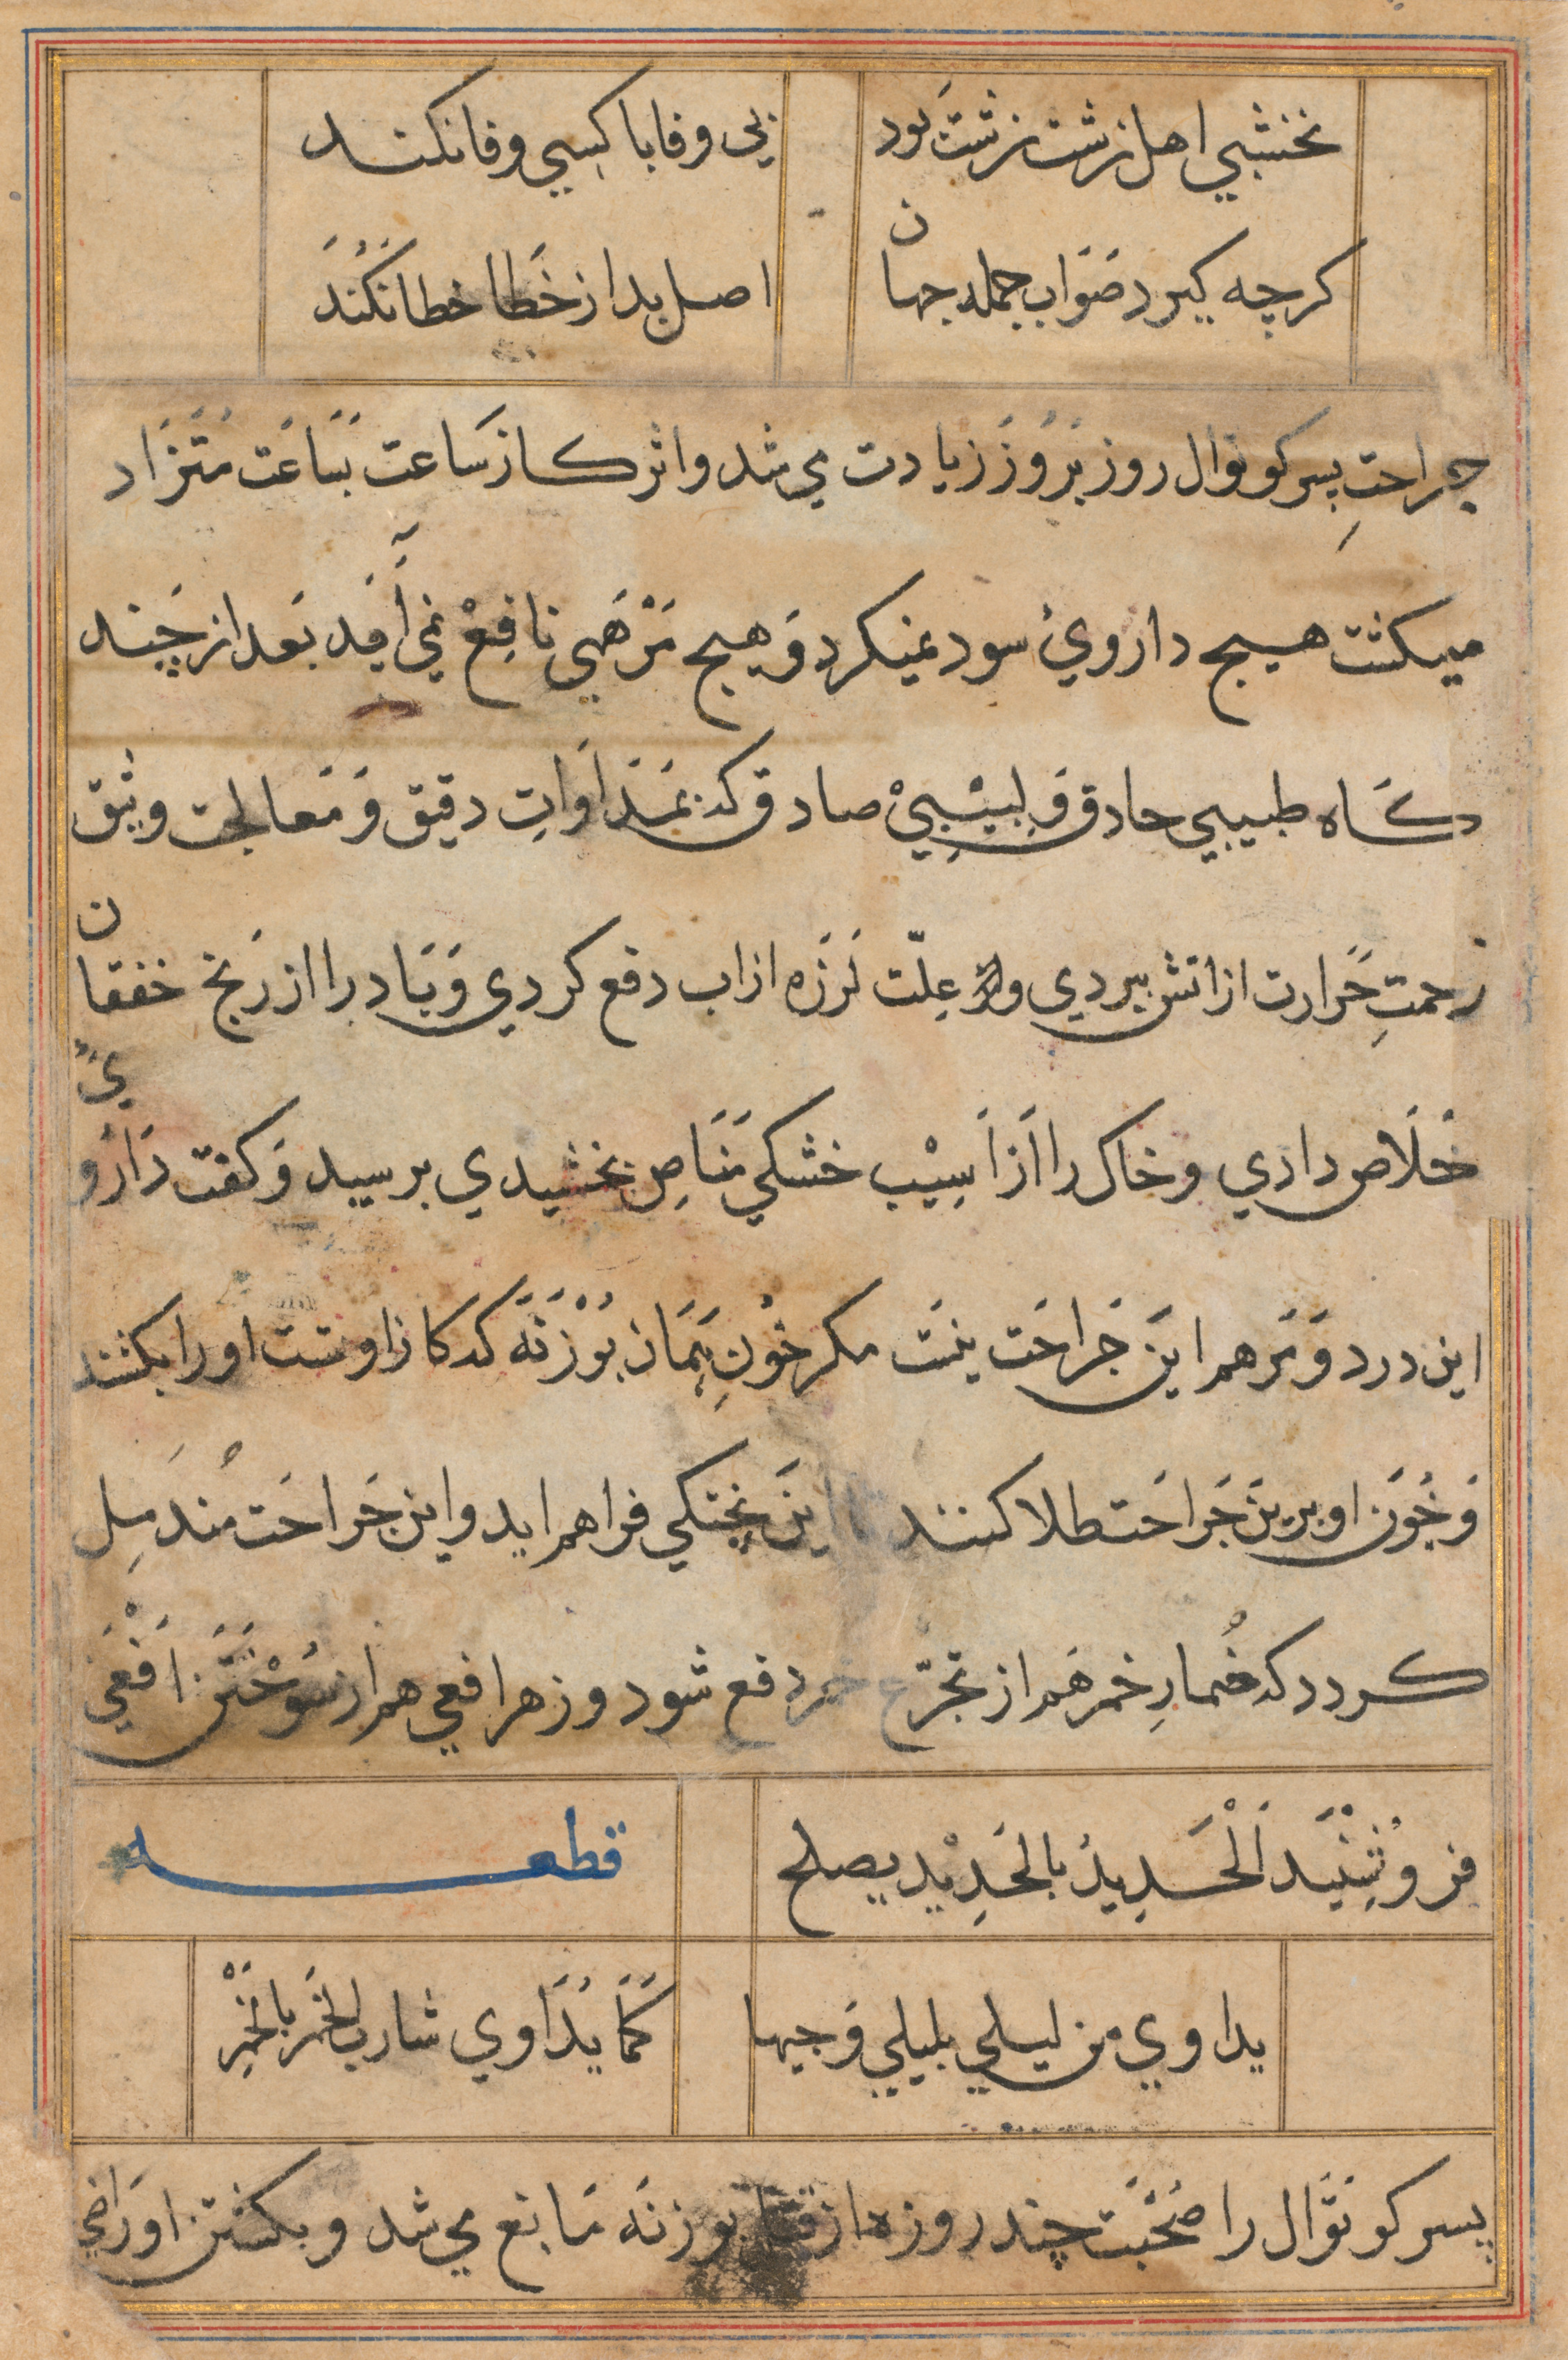 نخشبي اهل زشت زشت بود
بي وفا با كسي وفا نكند
كرچه كيرد صَوَاب جمله جهان
اصل بد از خَطا خطا نَكُنَدَ
جراحتِ پسر كوتوال روز بَرُوزَ زيادت مي شد و اثر كاز سَاعت بَسَاعَت مُتَزَاد
ميكشت هيچ داروئ سود نميكرد وَ هيچ مَرْهَمي نافِعْ نمي آمَد بَعد از چَند
كَاه طبيبي حاذق وَ لبِيْبِيْ صادق كه بَمَدَاوَاتِ دقيق وَ مَعالجت وثيق
زحمتِ حَرارت از اتش ببردي و عِلّت لَرزَه از اب دفع كردي وَ بَاد را از رَنج خفقان
خَلَاص دادي و خاك را اَز اَسِيْب خشكي مَنَاصِ بخشيدي برسيد وَ كفت دَارُوئ
اين درد وَ مَرهم اين جَراحَت نيست مكر خُونِ هَمَان بُوْزَنَه كه كاز اوست او را بكشند
وَ خُوَن او برين جَرَاحَت طلا كنند اين پختكي فراهم ايد و اين جَراحَت مُندَمِل
كردد كه خُمارِ خمر هَم از تجرّع خمر دفع شود و زهر افعي هم از سُوْخْتَن اَفْعَي
فرو نشِيْنَد اَلْحَدِيدُ بالحَدِيْد يصلح
قطعه
يداوي من ليلي بليلي وَجيها
كَمَا يُدَاوي شارب الخَمر بالخَمْرِ
پسر كوتوَال را صُحْبَت چند روزه از بوزنَه مَانع مي شد و بكشتن او رَاضي